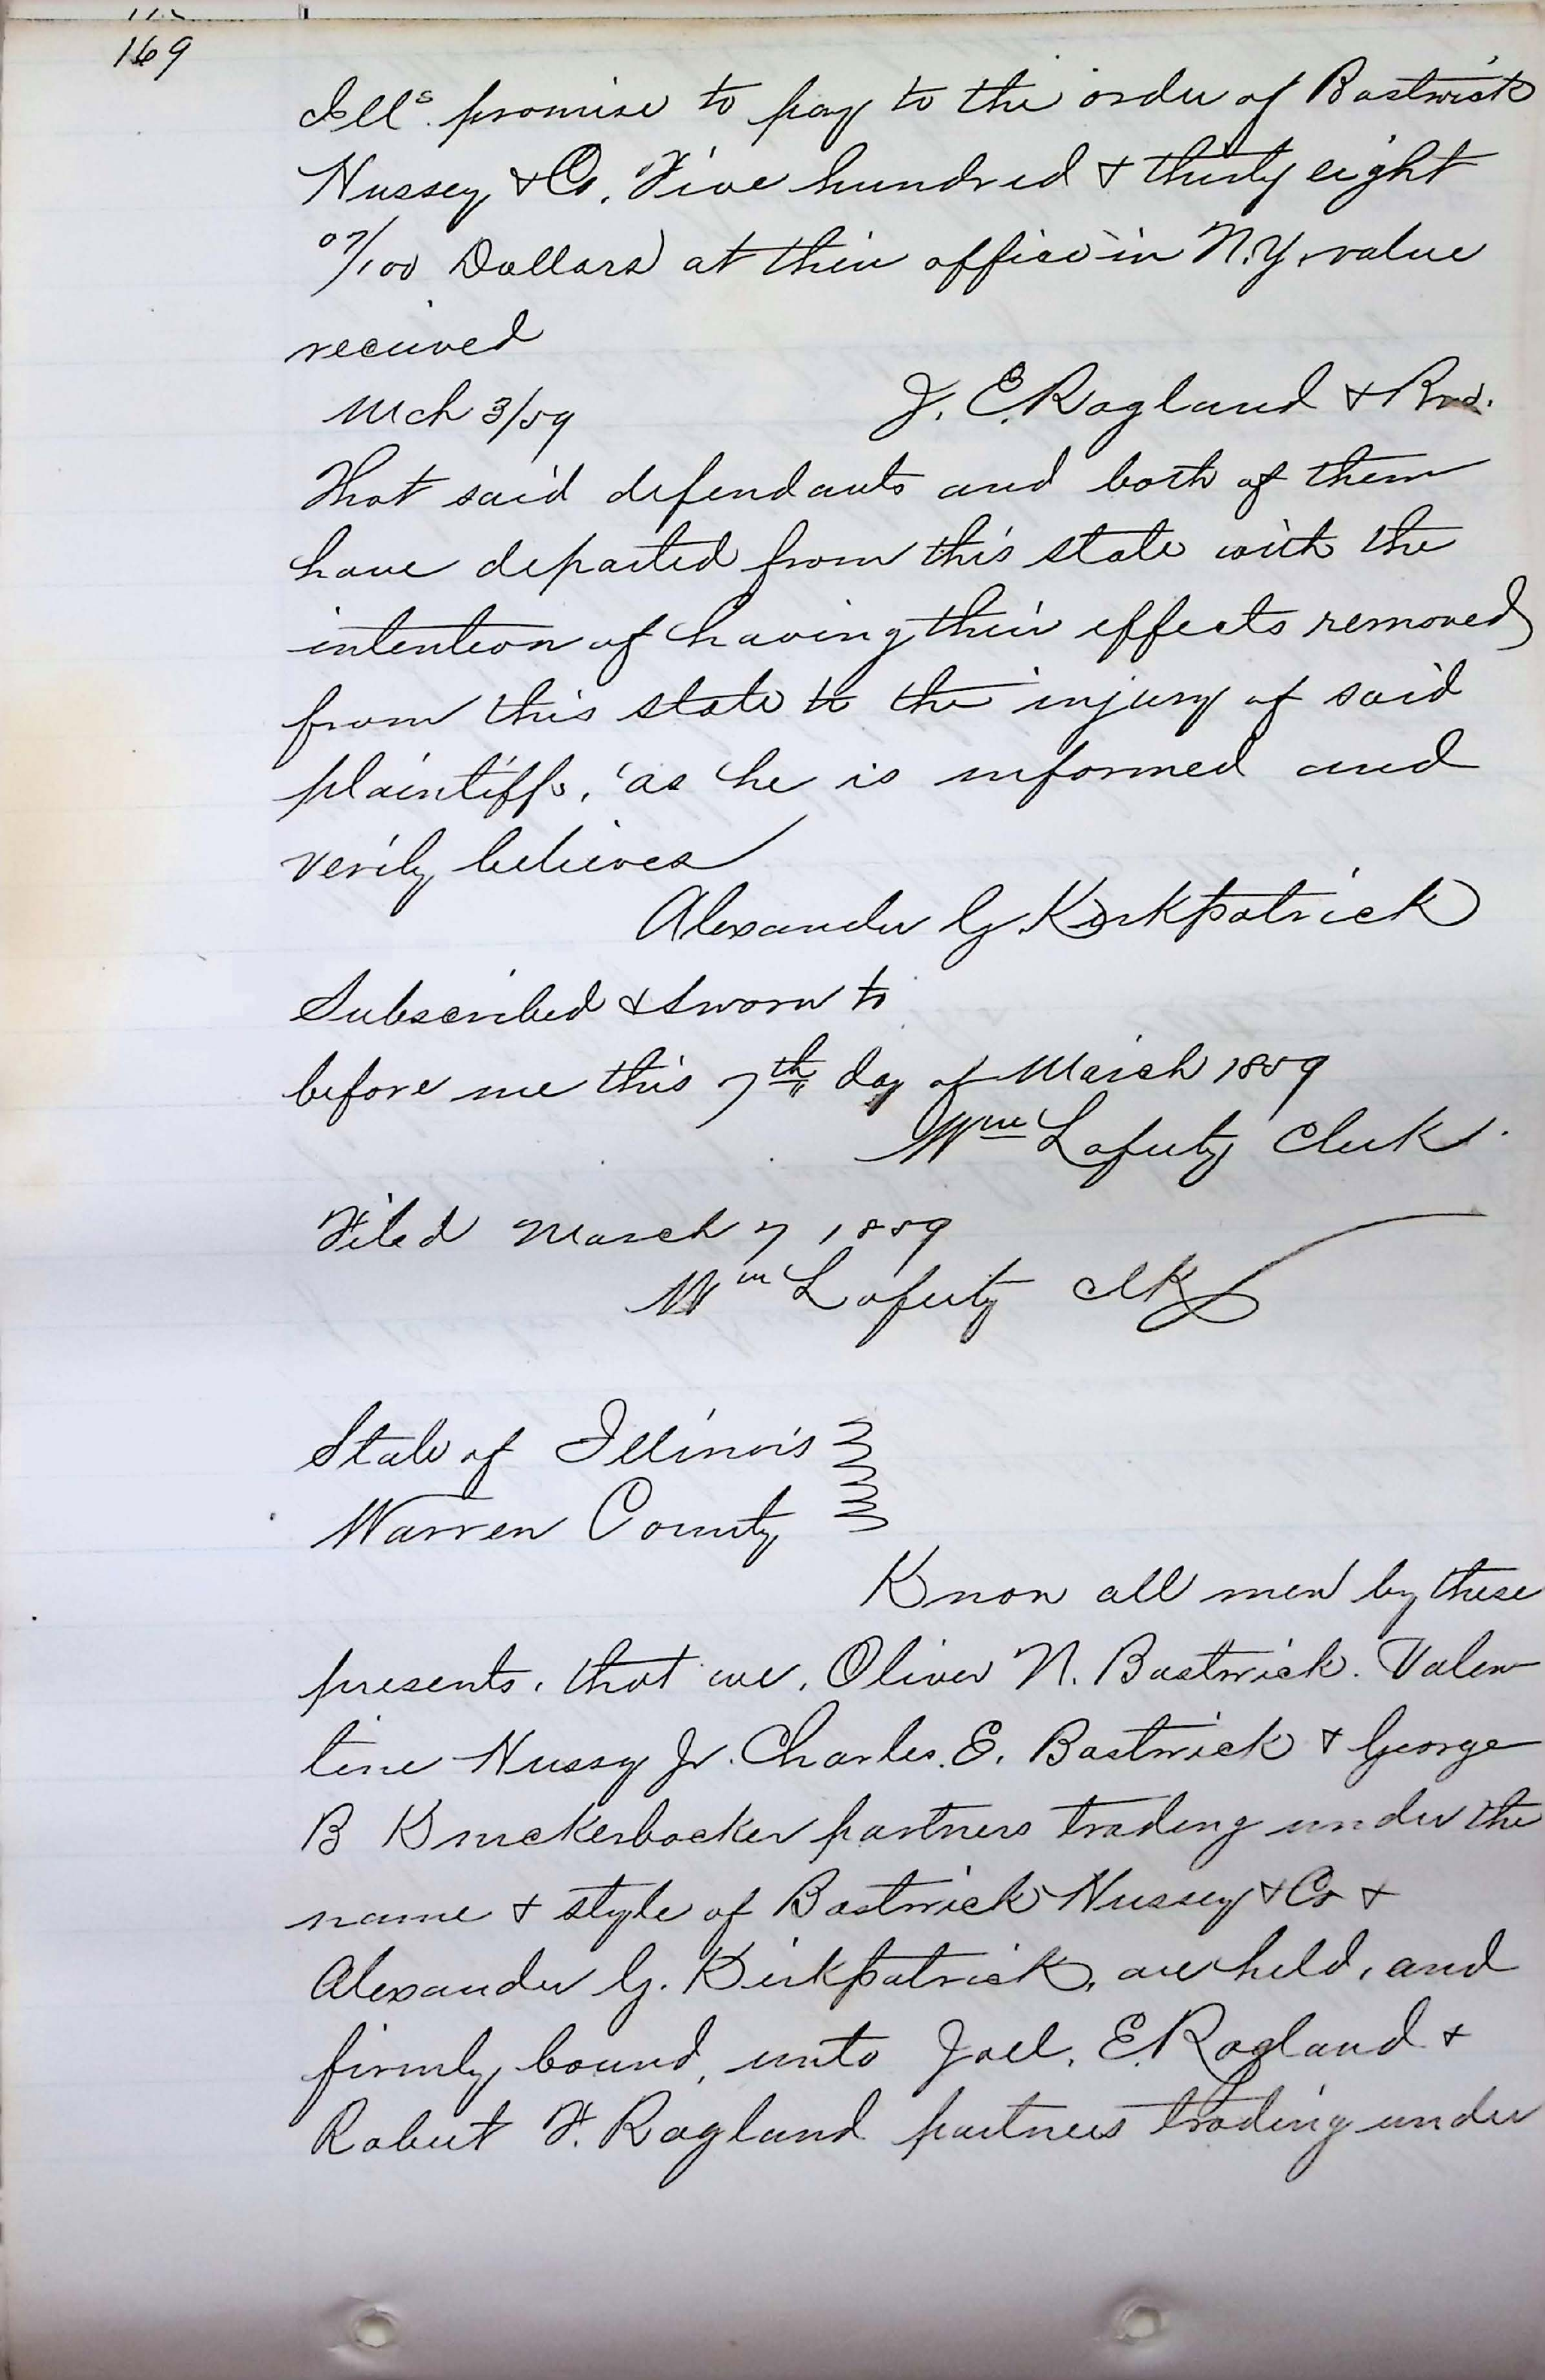 169
Ills. promise to pay to the order of Bostwick
Hussey & Co. Five hundred & thirty eight
07/100 Dollars at their office in N.Y. value
received
Mch 3/59 J. E. Ragland & Bro.
That said defendants and both of them
have departed from this state with the
intention of having their effects removed
from this state to the injury of said
plaintiffs, as he is informed and
verily believes
Alexander G. Kirkpatrick
Subscribed & sworn to
before me this 7th day of March 1859
Wm Laferty Clerk.
Filed March 7 1859
Wm Laferty clk
State of Illinois
Warren County
Know all men by these
presents, that we, Oliver N. Bostwick. Valen
tine Hussy Jr. Charles. E. Bostwick & George
B Knickerbocker partners trading under the
name & style of Bostwick Hussey & Co &
Alexander G. Kirkpatrick, are held, and
firmly bound, unto Joel. E. Ragland &
Robert F. Ragland partners trading under